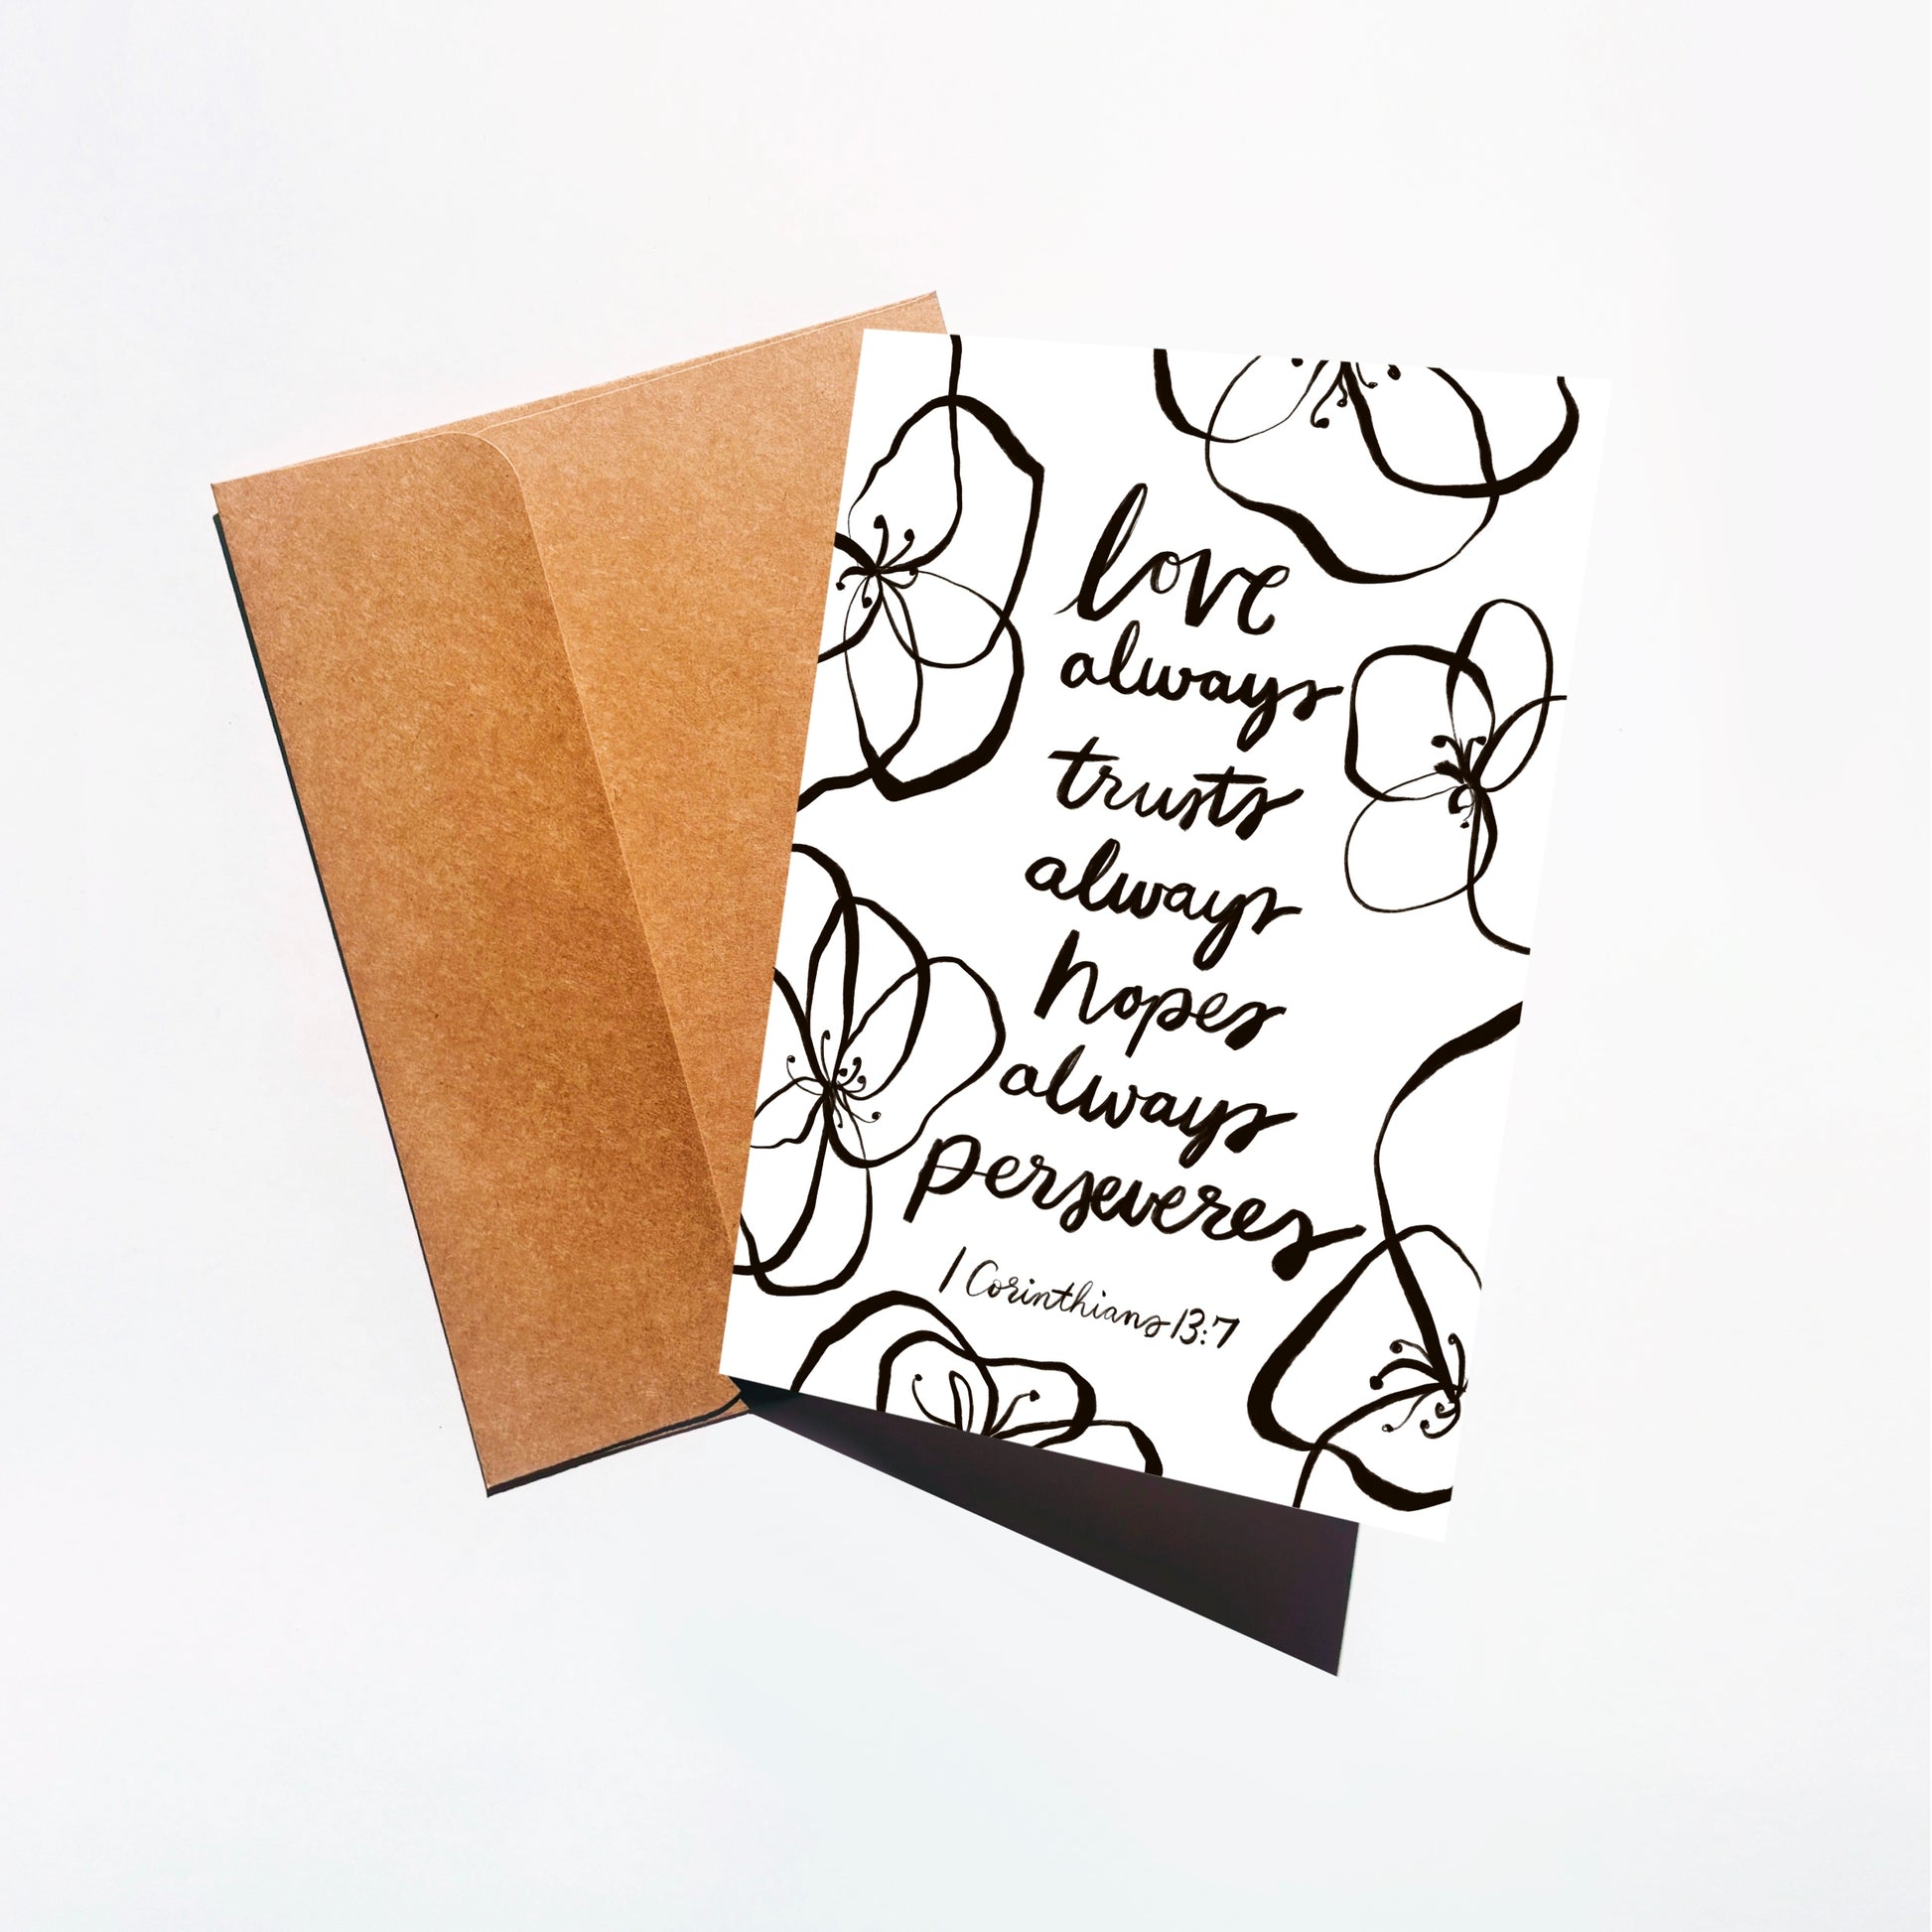 love
always
trusts
always
hopes
always
perseveres
1 Corinthians 13:7